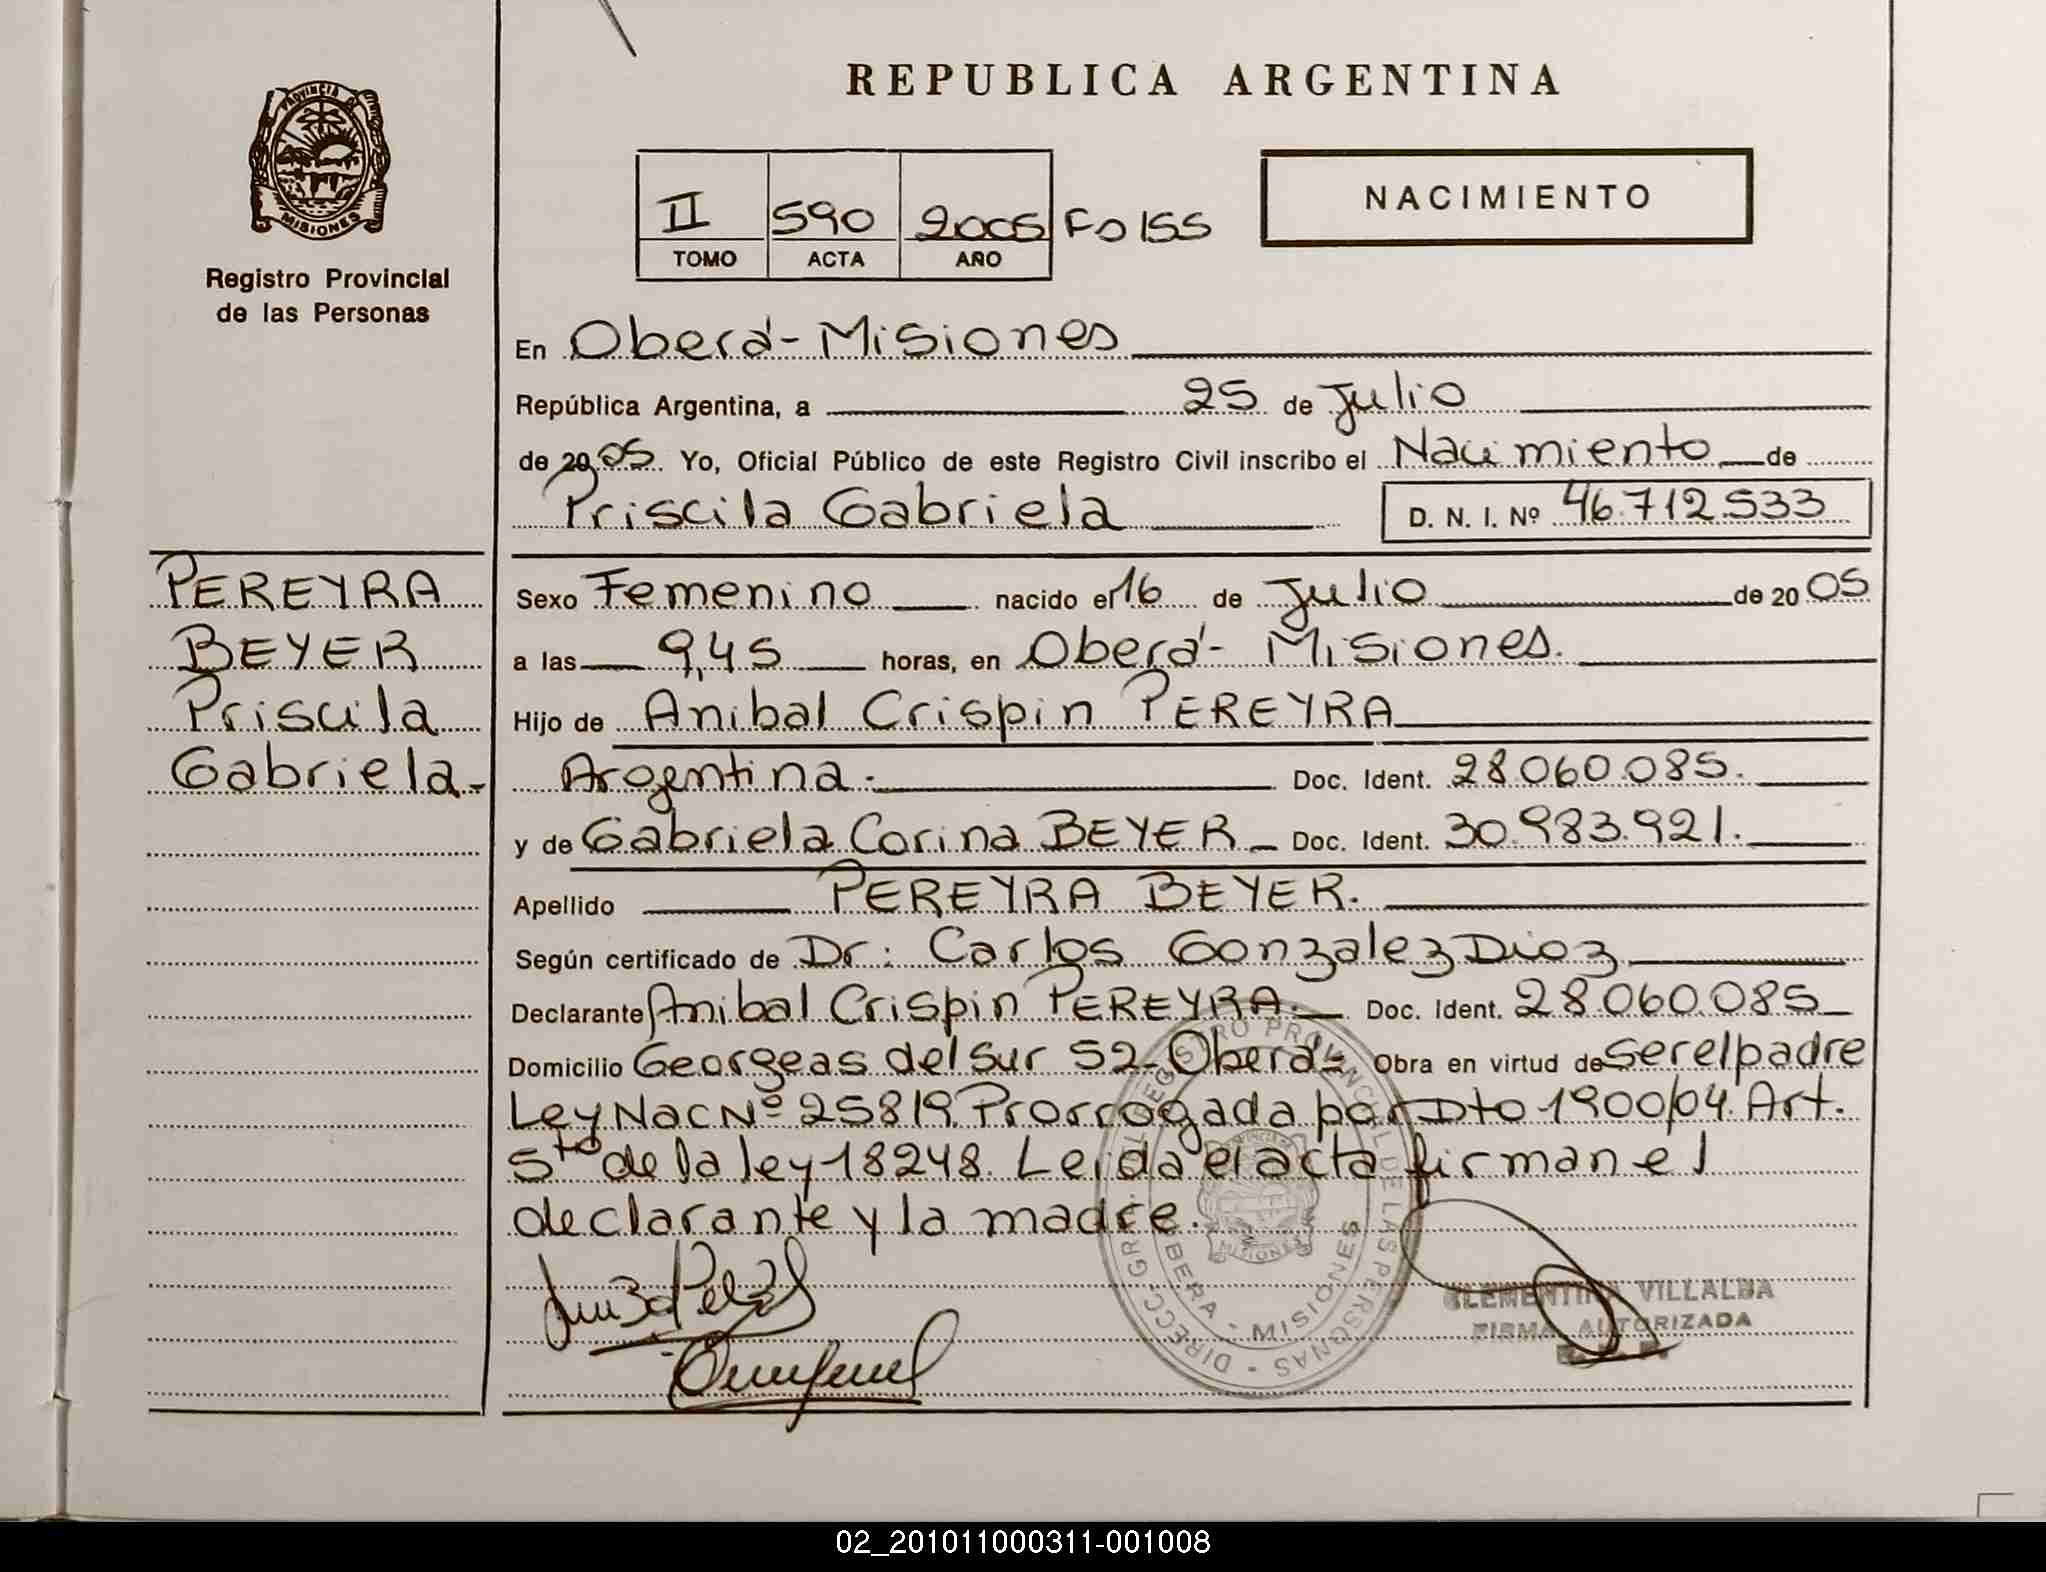 REPUBLICA ARGENTINA
PROVINCIA DE
MISIONES
Registro Provincial
de las Personas
NACIMIENTO
II 590 2005 Fo 155
TOMO ACTA AÑO
En Oberá - Misiones
República Argentina, a 25 de Julio
de 2005 Yo, Oficial Público de este Registro Civil inscribo el Nacimiento de
Priscila Gabriela D. N. I. Nº 46.712.533
PEREYRA
BEYER
Priscila
Gabriela.-
Sexo Femenino nacido el 16 de Julio de 2005
a las 9,45 horas, en Oberá - Misiones.
Hijo de Anibal Crispin PEREYRA
Argentina.- Doc. Ident. 28.060.085.
y de Gabriela Corina BEYER Doc. Ident. 30.983.921.
Apellido PEREYRA BEYER.
Según certificado de Dr: Carlos Gonzalez Dioz
Declarante Anibal Crispin PEREYRA. Doc. Ident. 28.060.085
Domicilio Georgeas del Sur 52 - Oberá - Obra en virtud de ser el padre
Ley Nac Nº 25819. Prorrogada por Dto 1900/04. Art.
5to de la ley 18248. Leida el acta firman el
declarante y la madre.
DIRECC. GRAL. DEL REGISTRO PROVINCIAL DE LAS PERSONAS -
OBERA - MISIONES
MISIONES
CLEMENTINA VILLALBA
FIRMA AUTORIZADA
02_201011000311-001008